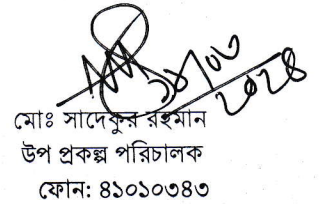 ১০/০৩
২০২৪
মোঃ সাদেকুর রহমান
উপ প্রকল্প পরিচালক
ফোন: ৪১০১০৩৪৩